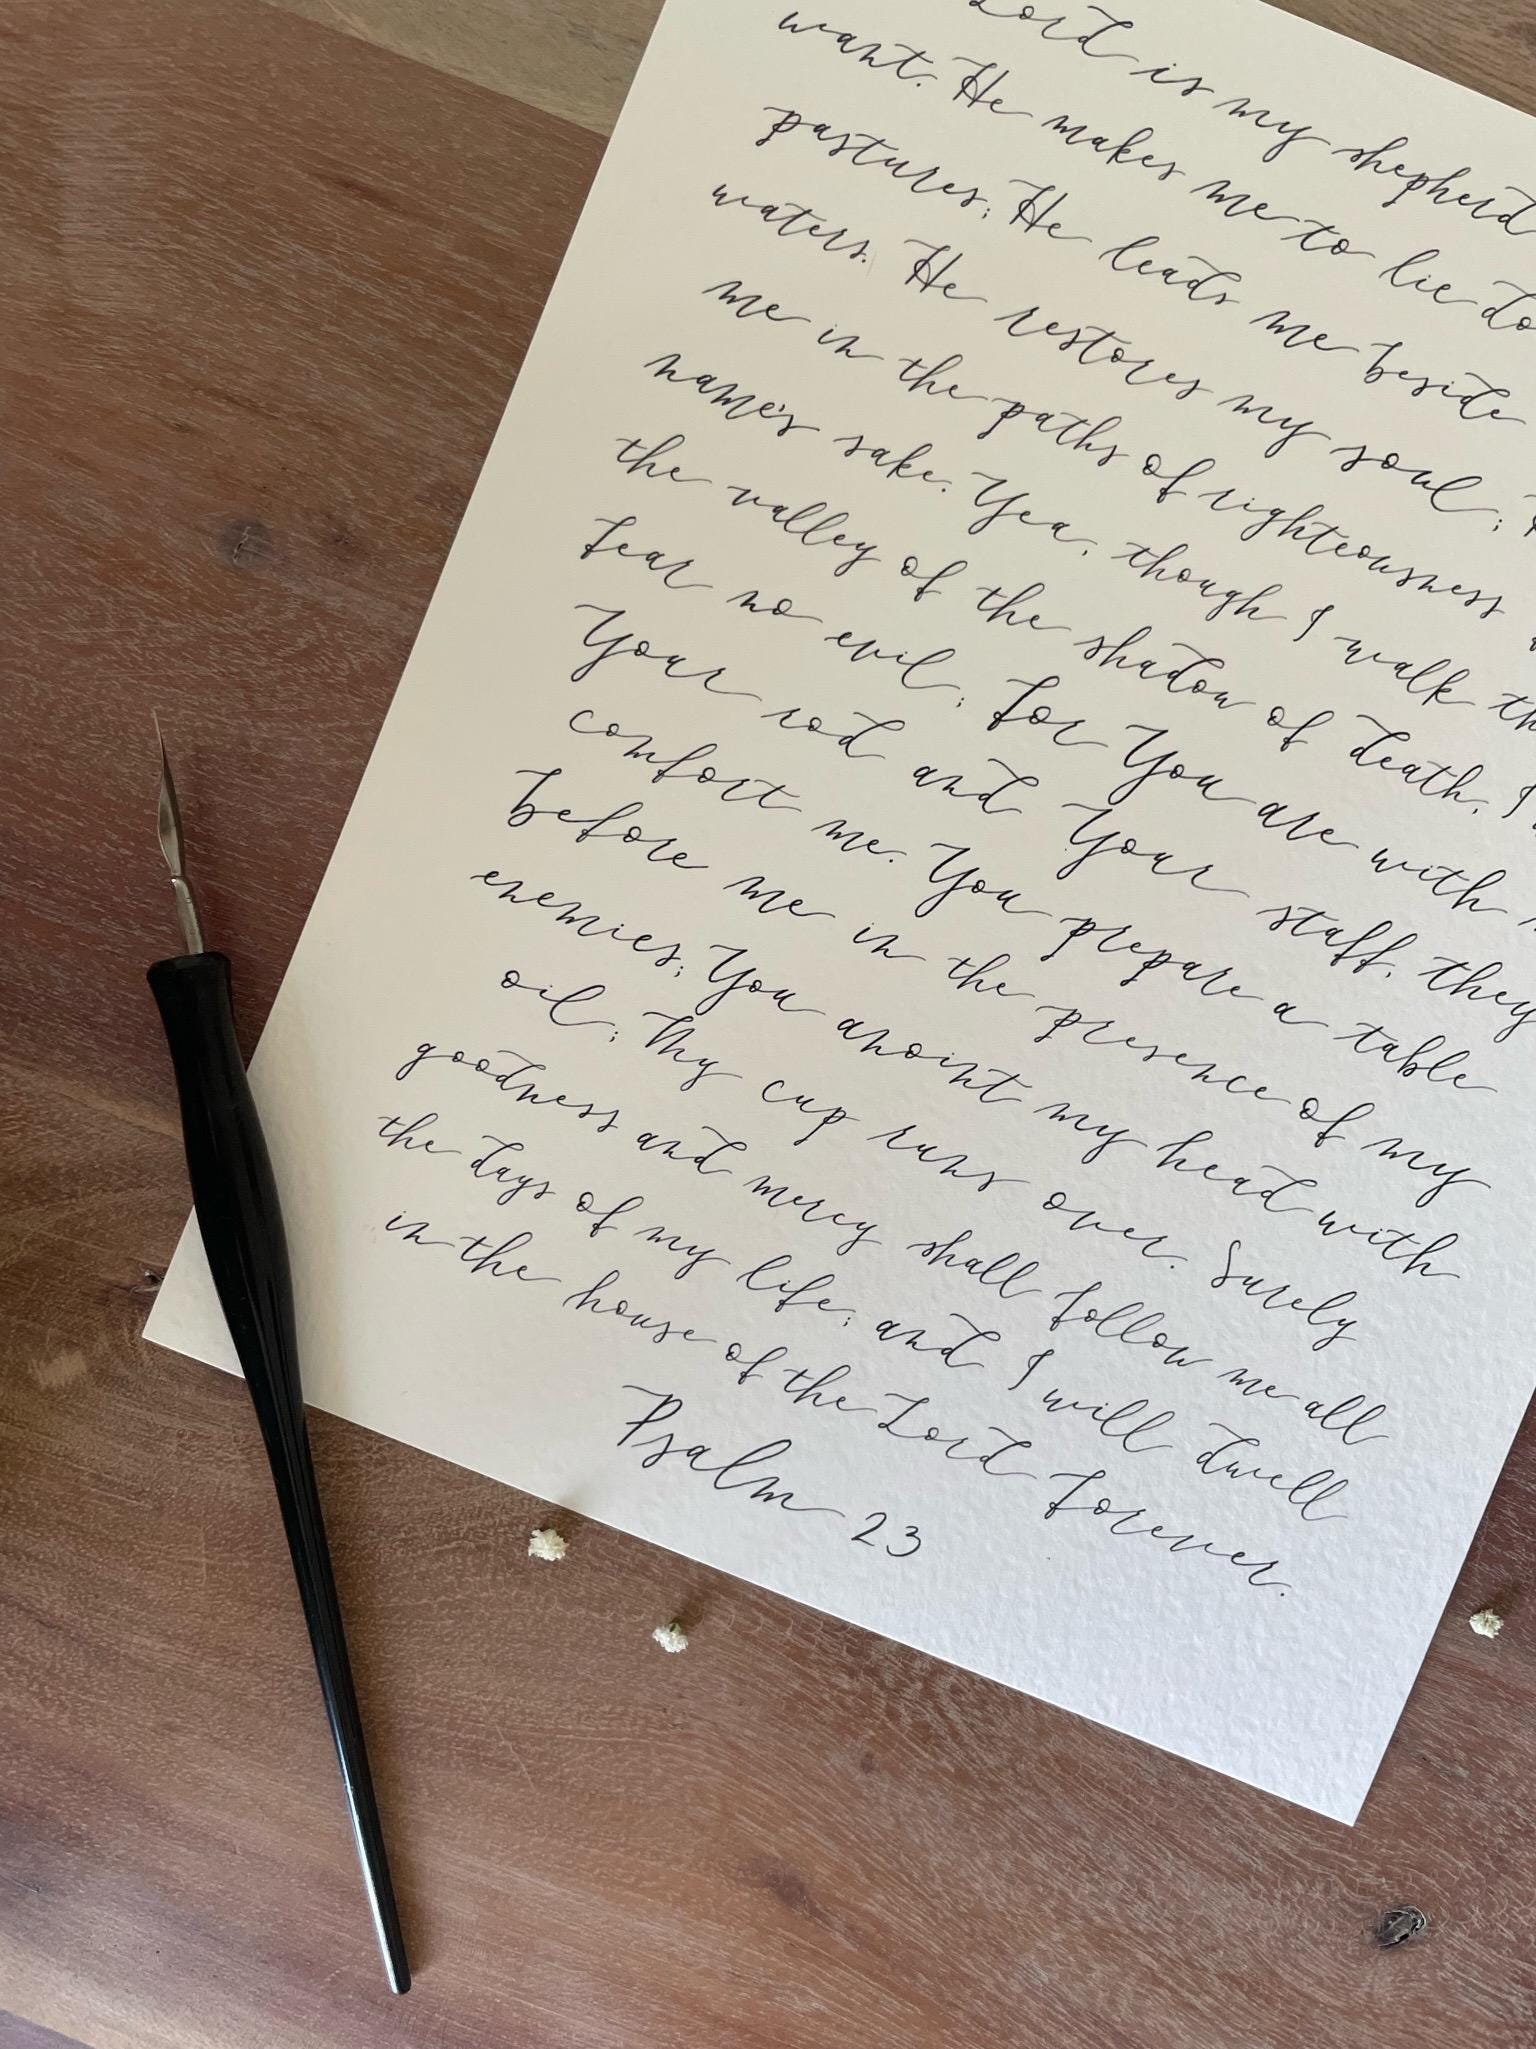 Lord is my shepherd
want. He makes me to lie do
pastures; He leads me beside
waters. He restores my soul;
me in the paths of righteousness
name's sake. Yea, though I walk th
the valley of the shadow of death, I
fear no evil; for You are with
Your rod and Your staff, they
comfort me. You prepare a table
before me in the presence of my
enemies; You anoint my head with
oil; My cup runs over. Surely
goodness and mercy shall follow me all
the days of my life; and I will dwell
in the house of the Lord forever.
Psalm 23